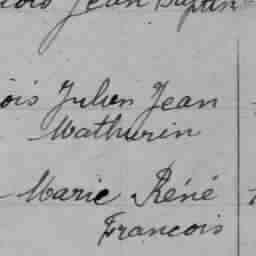 Jean Baptist
ois Julien Jean
Mathurin
Marie Réné
Francois